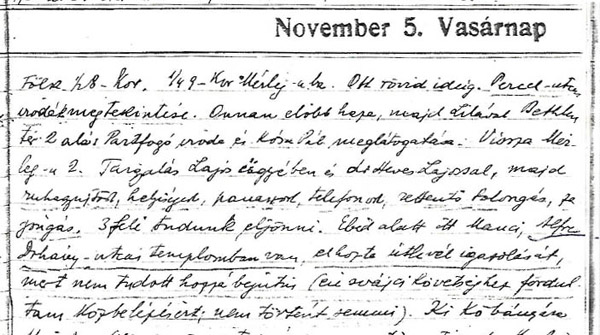 November 5. Vasárnap
Fölk. 1/2 8-kor. 1/4 9-kor Mérleg-u.ba. Ott rövid ideig. Perczel-utcai
irodák megtekintése. Onnan előbb haza, majd Lilával Bethlen
tér 2 alás Pártfogó iroda és Kósa Pál meglátogatása. Vissza Mér-
leg-u 2. Tárgyalás Lajos ügyében és dr Heves Lajossal, majd
helyiség, panaszok, telefonok, rettentő tolongás,
3 felé tudunk eljönni. Ebéd alatt ott Manci, Alfréd
Dohány-utcai templomban van, elhozta útlevél igazolását,
mert nem tudott hozzá bejutni (én svájci követséghez fordul
tam közbelépésért; nem történt semmi). Ki Kőbányára